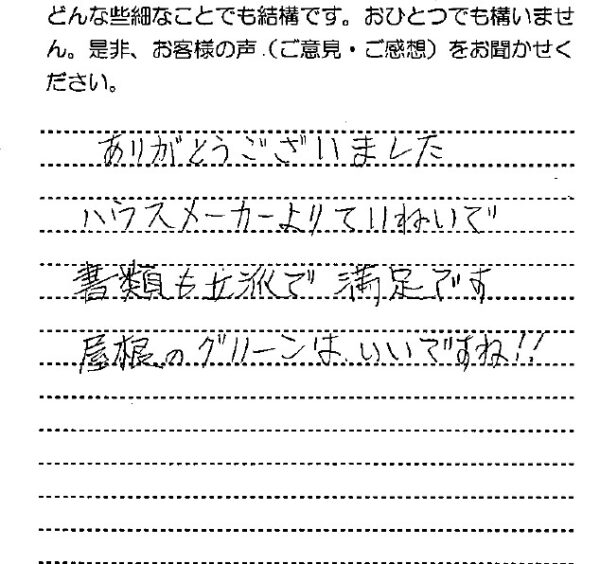 どんな些細なことでも結構です。おひとつでも構いませ
ん。是非、お客様の声（ご意見・ご感想）をお聞かせく
ださい。
ありがとうございました
ハウスメーカーよりていねいで
書類も立派で満足です
屋根のグリーンは、いいですね!!